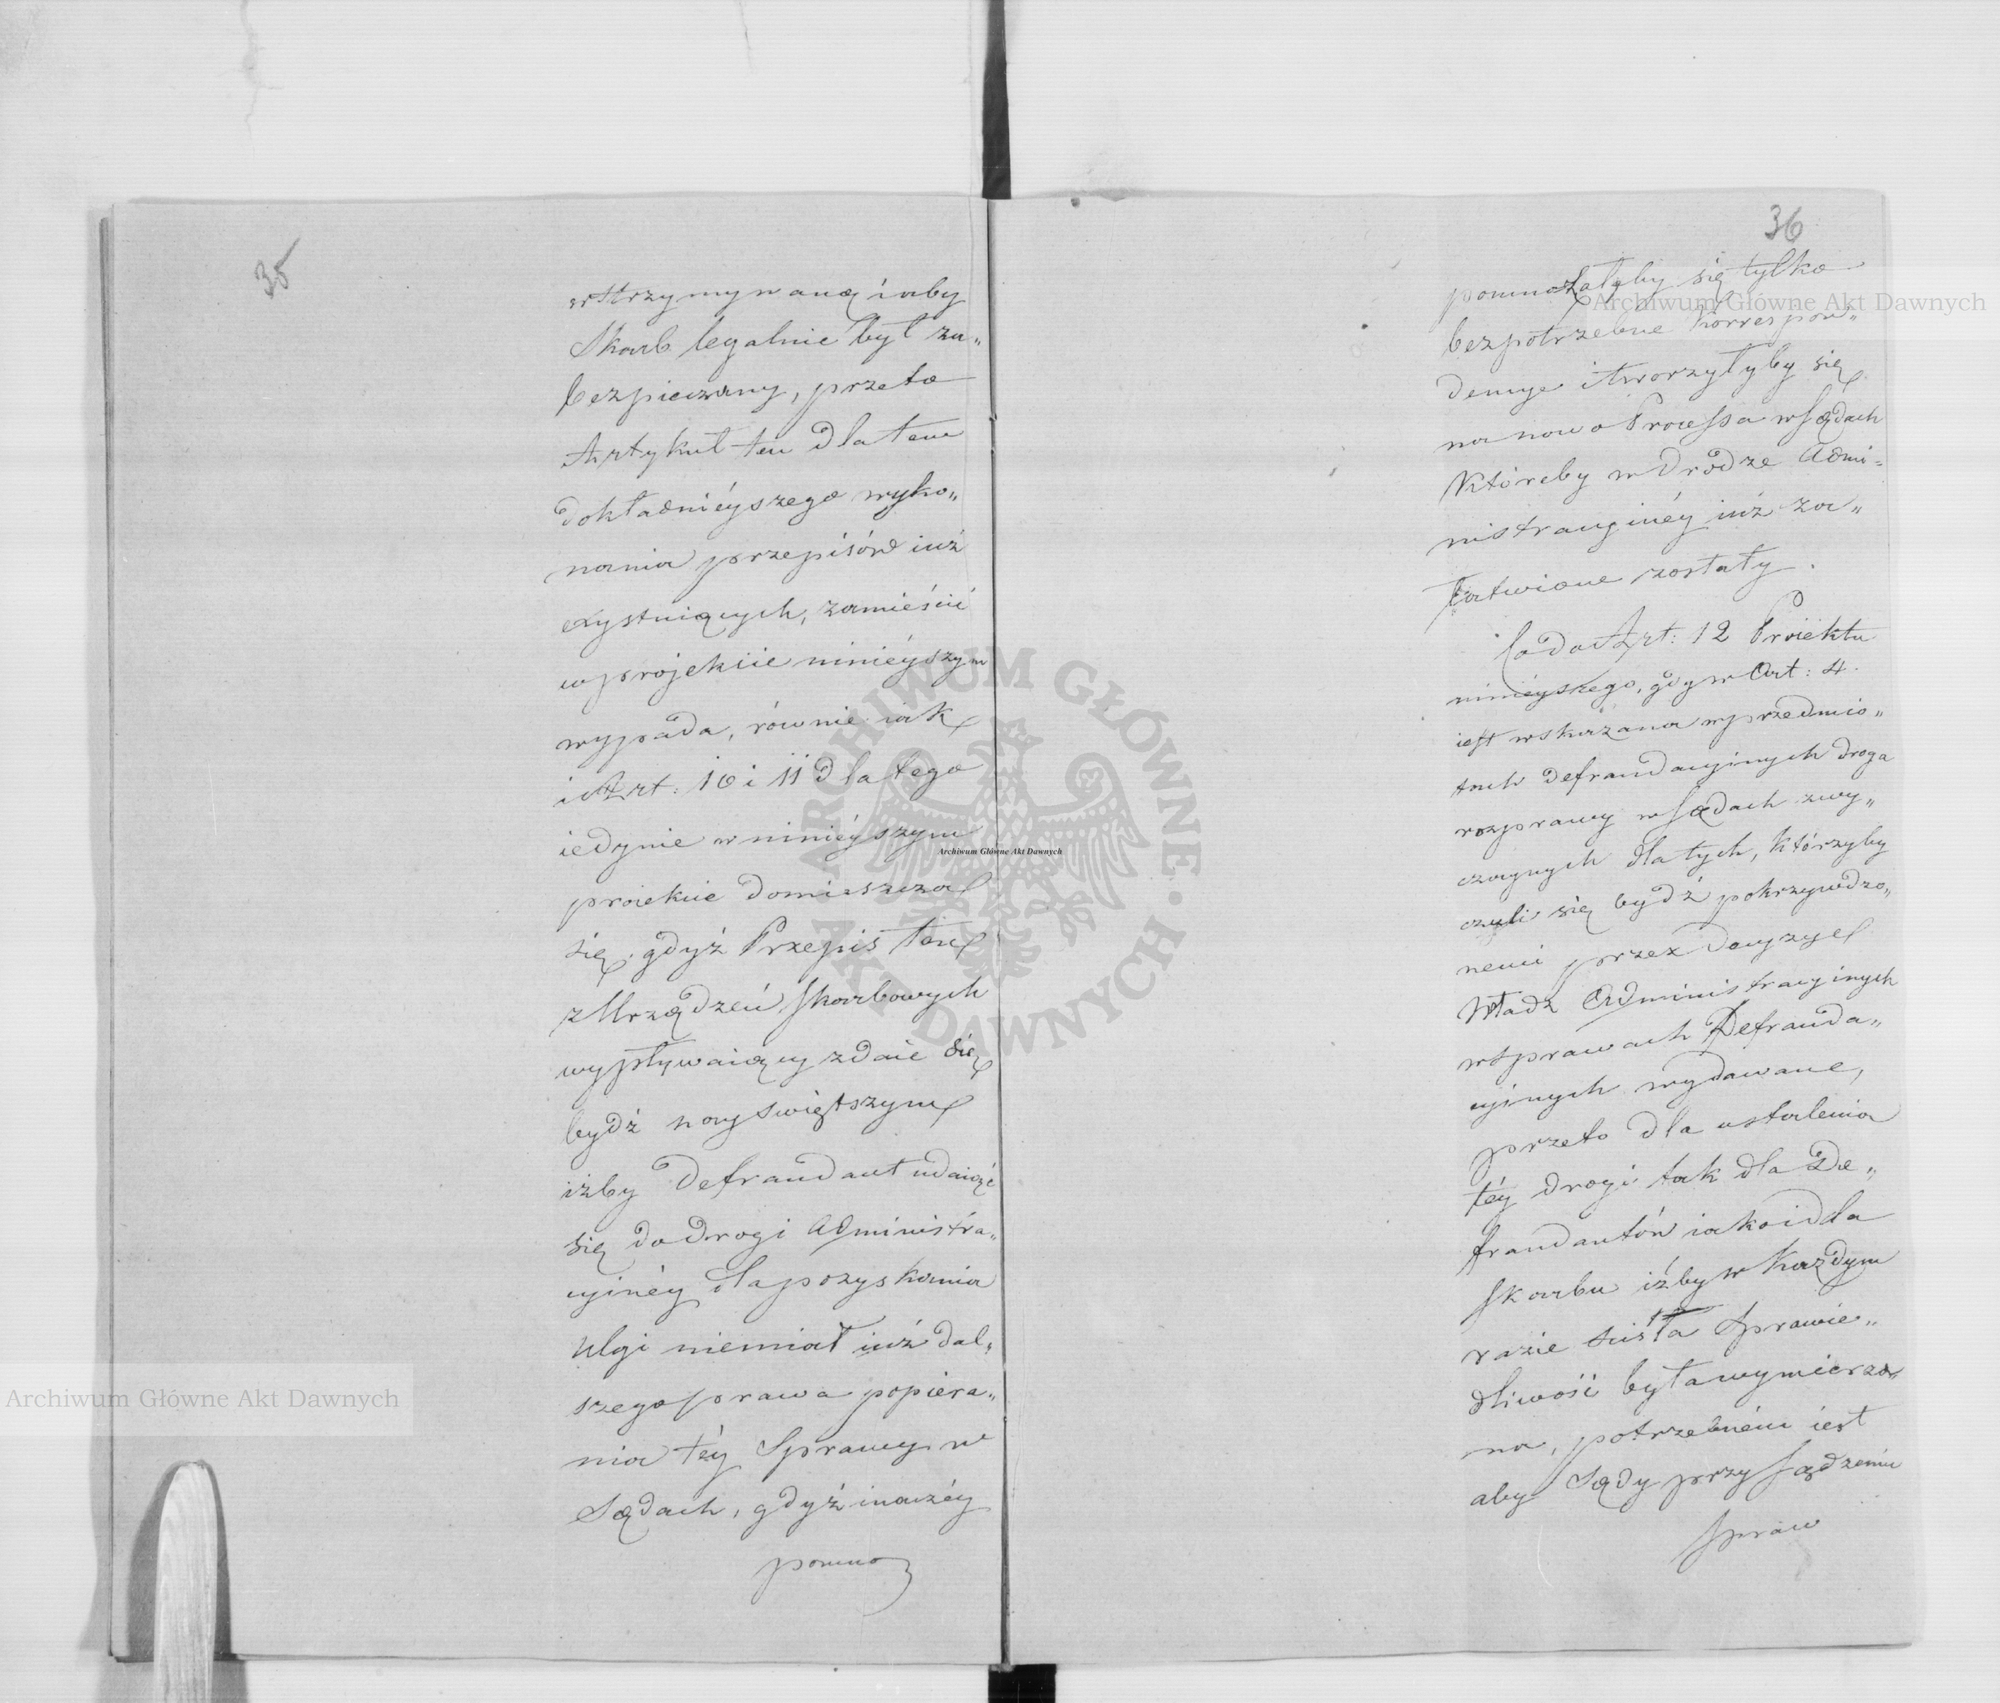 35
wstrzymywaną i aby
Skarb legalnie był za„
bezpieczony, przeto
Artykuł ten dla tem
dokładnieyszego wyko„
nania przepisów iuż
exystuiących, zamieścić
w projekcie ninieyszym
wypada, równie iak
i Art: 10 i 11 dla tego
iedynie w ninieyszym
proiekcie domieszcza
się, gdyż Przepis ten
z Urządzeń Skarbowych
wypływaiący zdaie się
bydź nayświętszym
iżby Defraudant udaiąc
się do drogi Administra„
cyinéy dla pozyskania
ulgi niemiał iuż dal„
szego prawa popiera„
nia téy Sprawy w
Sądach, gdyż inaczéy
pomno
36
pomnożałyby się tylko
bezpotrzebne Korrespon„
dencye i tworzyłyby się
na nowo Processa w Sądach
Któreby w drodze Admi„
nistracyinéy iuż za„
łatwione zostały.
Co do Art: 12 Proiektu
ninieyszego, gdy w Art: 4.
iest wskazana w przedmio„
tach defraudacyinych droga
rozprawy w Sądach zwy„
czaynych dla tych, Którzyby
czuli się bydź pokrzywdzo„
nemi przez Decyzye
Władz Administracyinych
w Sprawach Defrauda„
cyinych wydawane,
przeto dla ustalenia
téy drogi tak dla De„
fraudantów iako i dla
Skarbu iżby w Każdym
razie ścisła Sprawie„
dliwość była wymierzo„
na, potrzebném iest
aby Sądy przy Sądzeniu
Spraw
Archiwum Główne Akt Dawnych
Archiwum Główne Akt Dawnych
Archiwum Główne Akt Dawnych
ARCHIWUM GŁÓWNE AKT DAWNYCH